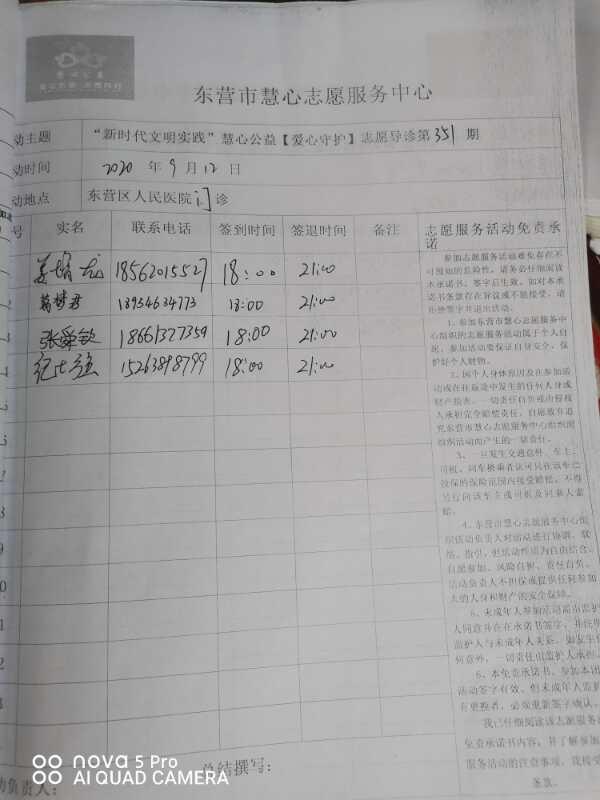 东营市慧心志愿服务中心
动主题 “新时代文明实践”慧心公益【爱心守护】志愿导诊第351期
动时间 2020年9月12日
动地点 东营区人民医院门诊
号 实名 联系电话 签到时间 签退时间 备注 志愿服务活动免责承诺
18562015527 18:00 21:00
葛梦君 13954634773 18:00 21:00
张舜钦 18661327359 18:00 21:00
15263898799 18:00 21:00
参加志愿服务活动难免存在不
可预知的危险性，请务必仔细阅读
本承诺书。签字后生效。如对本承
诺书条款存在异议或不能接受，请
拒绝签字并退出活动。
1、参加东营市慧心志愿服务中
心组织的志愿服务活动属于个人自
愿，参加活动要保证自身安全，保
护好个人财物。
2、因个人身体原因及在参加活
动或在往返途中发生的任何人身或
财产损害，一切责任自负或由侵权
人承担完全赔偿责任，自愿放弃追
究东营市慧心志愿服务中心组织因
组织活动而产生的一切责任。
3、一旦发生交通意外，车主、
司机、同车搭乘者认可只在该车已
投保的保险范围内接受赔偿，不得
另行向该车主或司机及同乘人索
赔。
4、东营市慧心志愿服务中心组
织活动负责人对活动进行协调、联
络、指引，但活动性质为自由结合、
自愿参加、风险自担、责任自负。
活动负责人不担保或提供任何参加
人的人身和财产的安全保障。
5、未成年人参加活动需由监护
人同意并在在承诺书签字，并注明
监护人与未成年人关系，如发生任
何意外，一切责任由监护人承担。
6、本免责承诺书，参加本团
活动签字有效，但未成年人监护
有更换者，必须重新签字确认。
我已仔细阅读该志愿服务活
免责承诺书内容，并了解参加
服务活动的注意事项，我接受
条款。
总结撰写：
动负责人：
nova 5 Pro
AI QUAD CAMERA